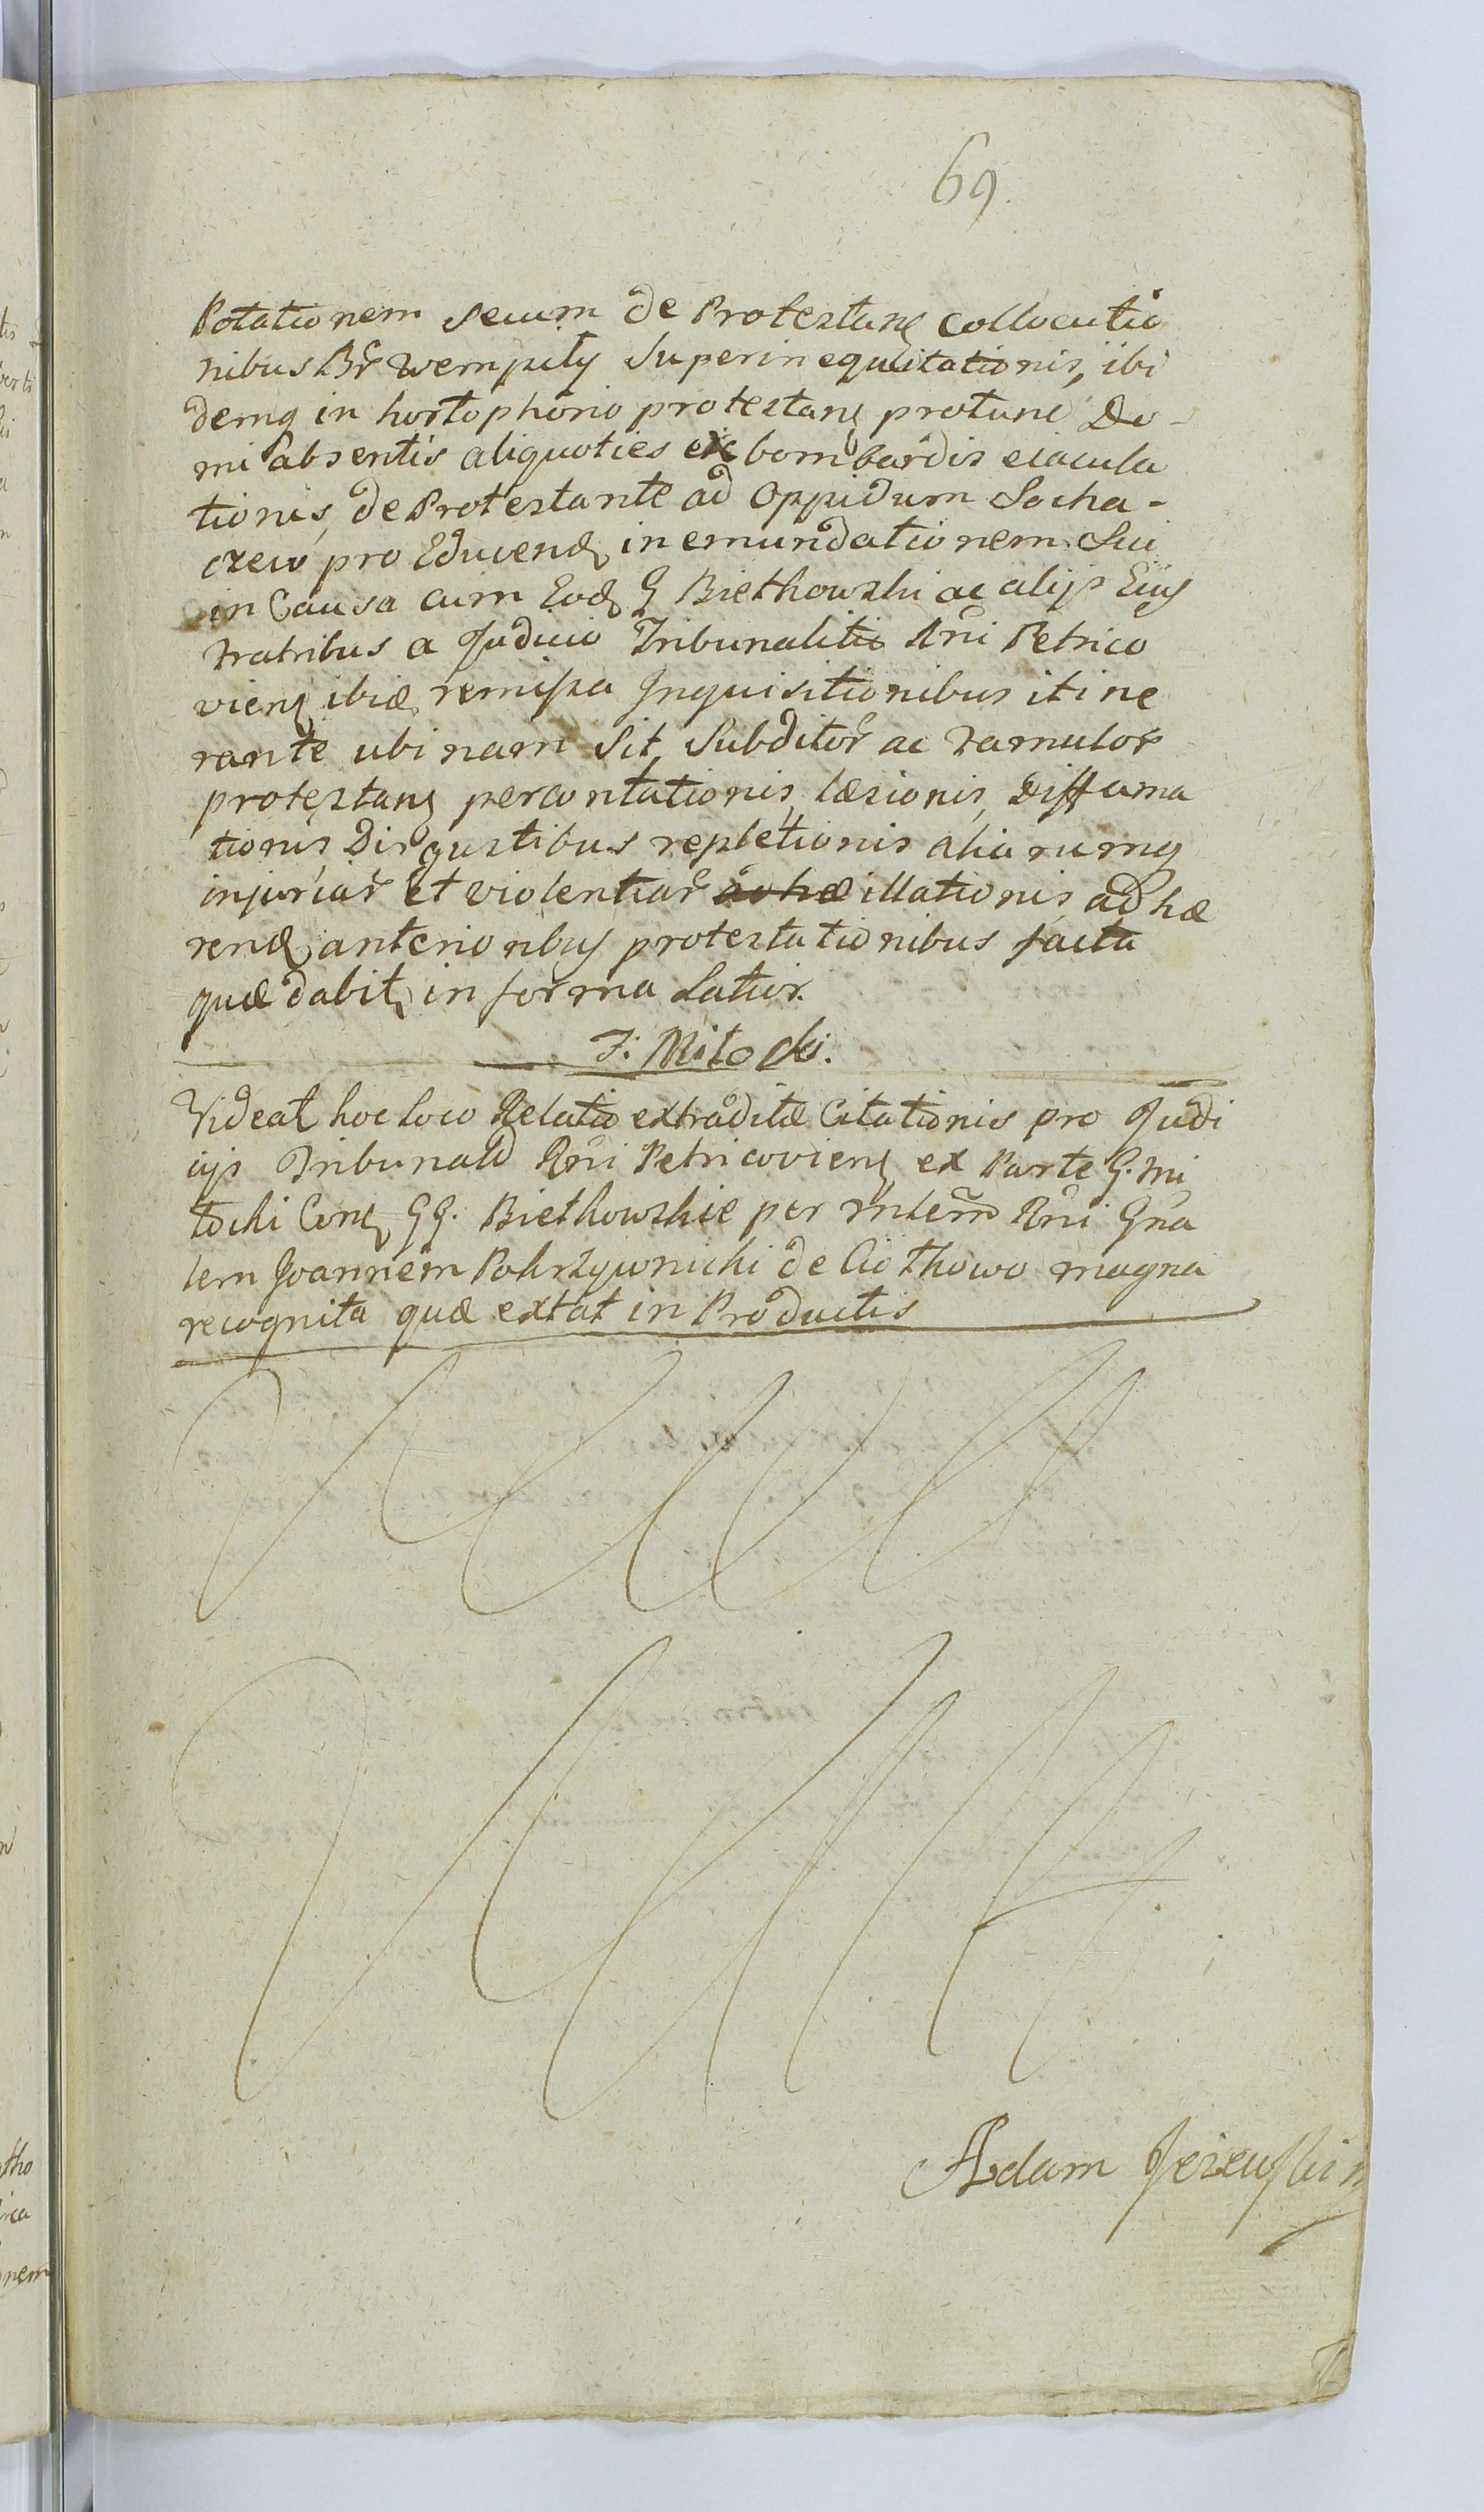 69.
Potationem secum de Protestane collocutio
nibus Br̃ wempity superinequitationis, ibi
demq in hortophorio protestane protunc Do-
mi absentis aliquoties ex bombardis eiacula
tionis, de Protestante ad Oppidum Socha-
czew pro Educend in emundationem Sui
in Causa cum Eod G Biethowski ac alijs Eius
Fratribus a Judicio Tribunalitio Rñi Petrico
viens ibid remissa Inquisitionibus itine
rante ubinam sit, Subditor̃ ac Famulor̃
protestans percontationis, læsionis, Diffama
tionis Disgustibus repletionis aliarumq
injuriar̃ et violentiar̃ adhæ illationis, adhæ
rend anterioribus protestationibus facta
quæ dabit in forma Latior.
F. Mitocki.
Videat hoc loco Relatio extraditæ Citationis pro Judi
cijs Tribunal Rñi Petricoviens ex Parte G. Mi
tocki Con GG. Biethowskie per Mtem Rñi Gña
lem Joannem Pokrzywnicki de Ciothowo magna
recognita quæ extat in Productis
Adam